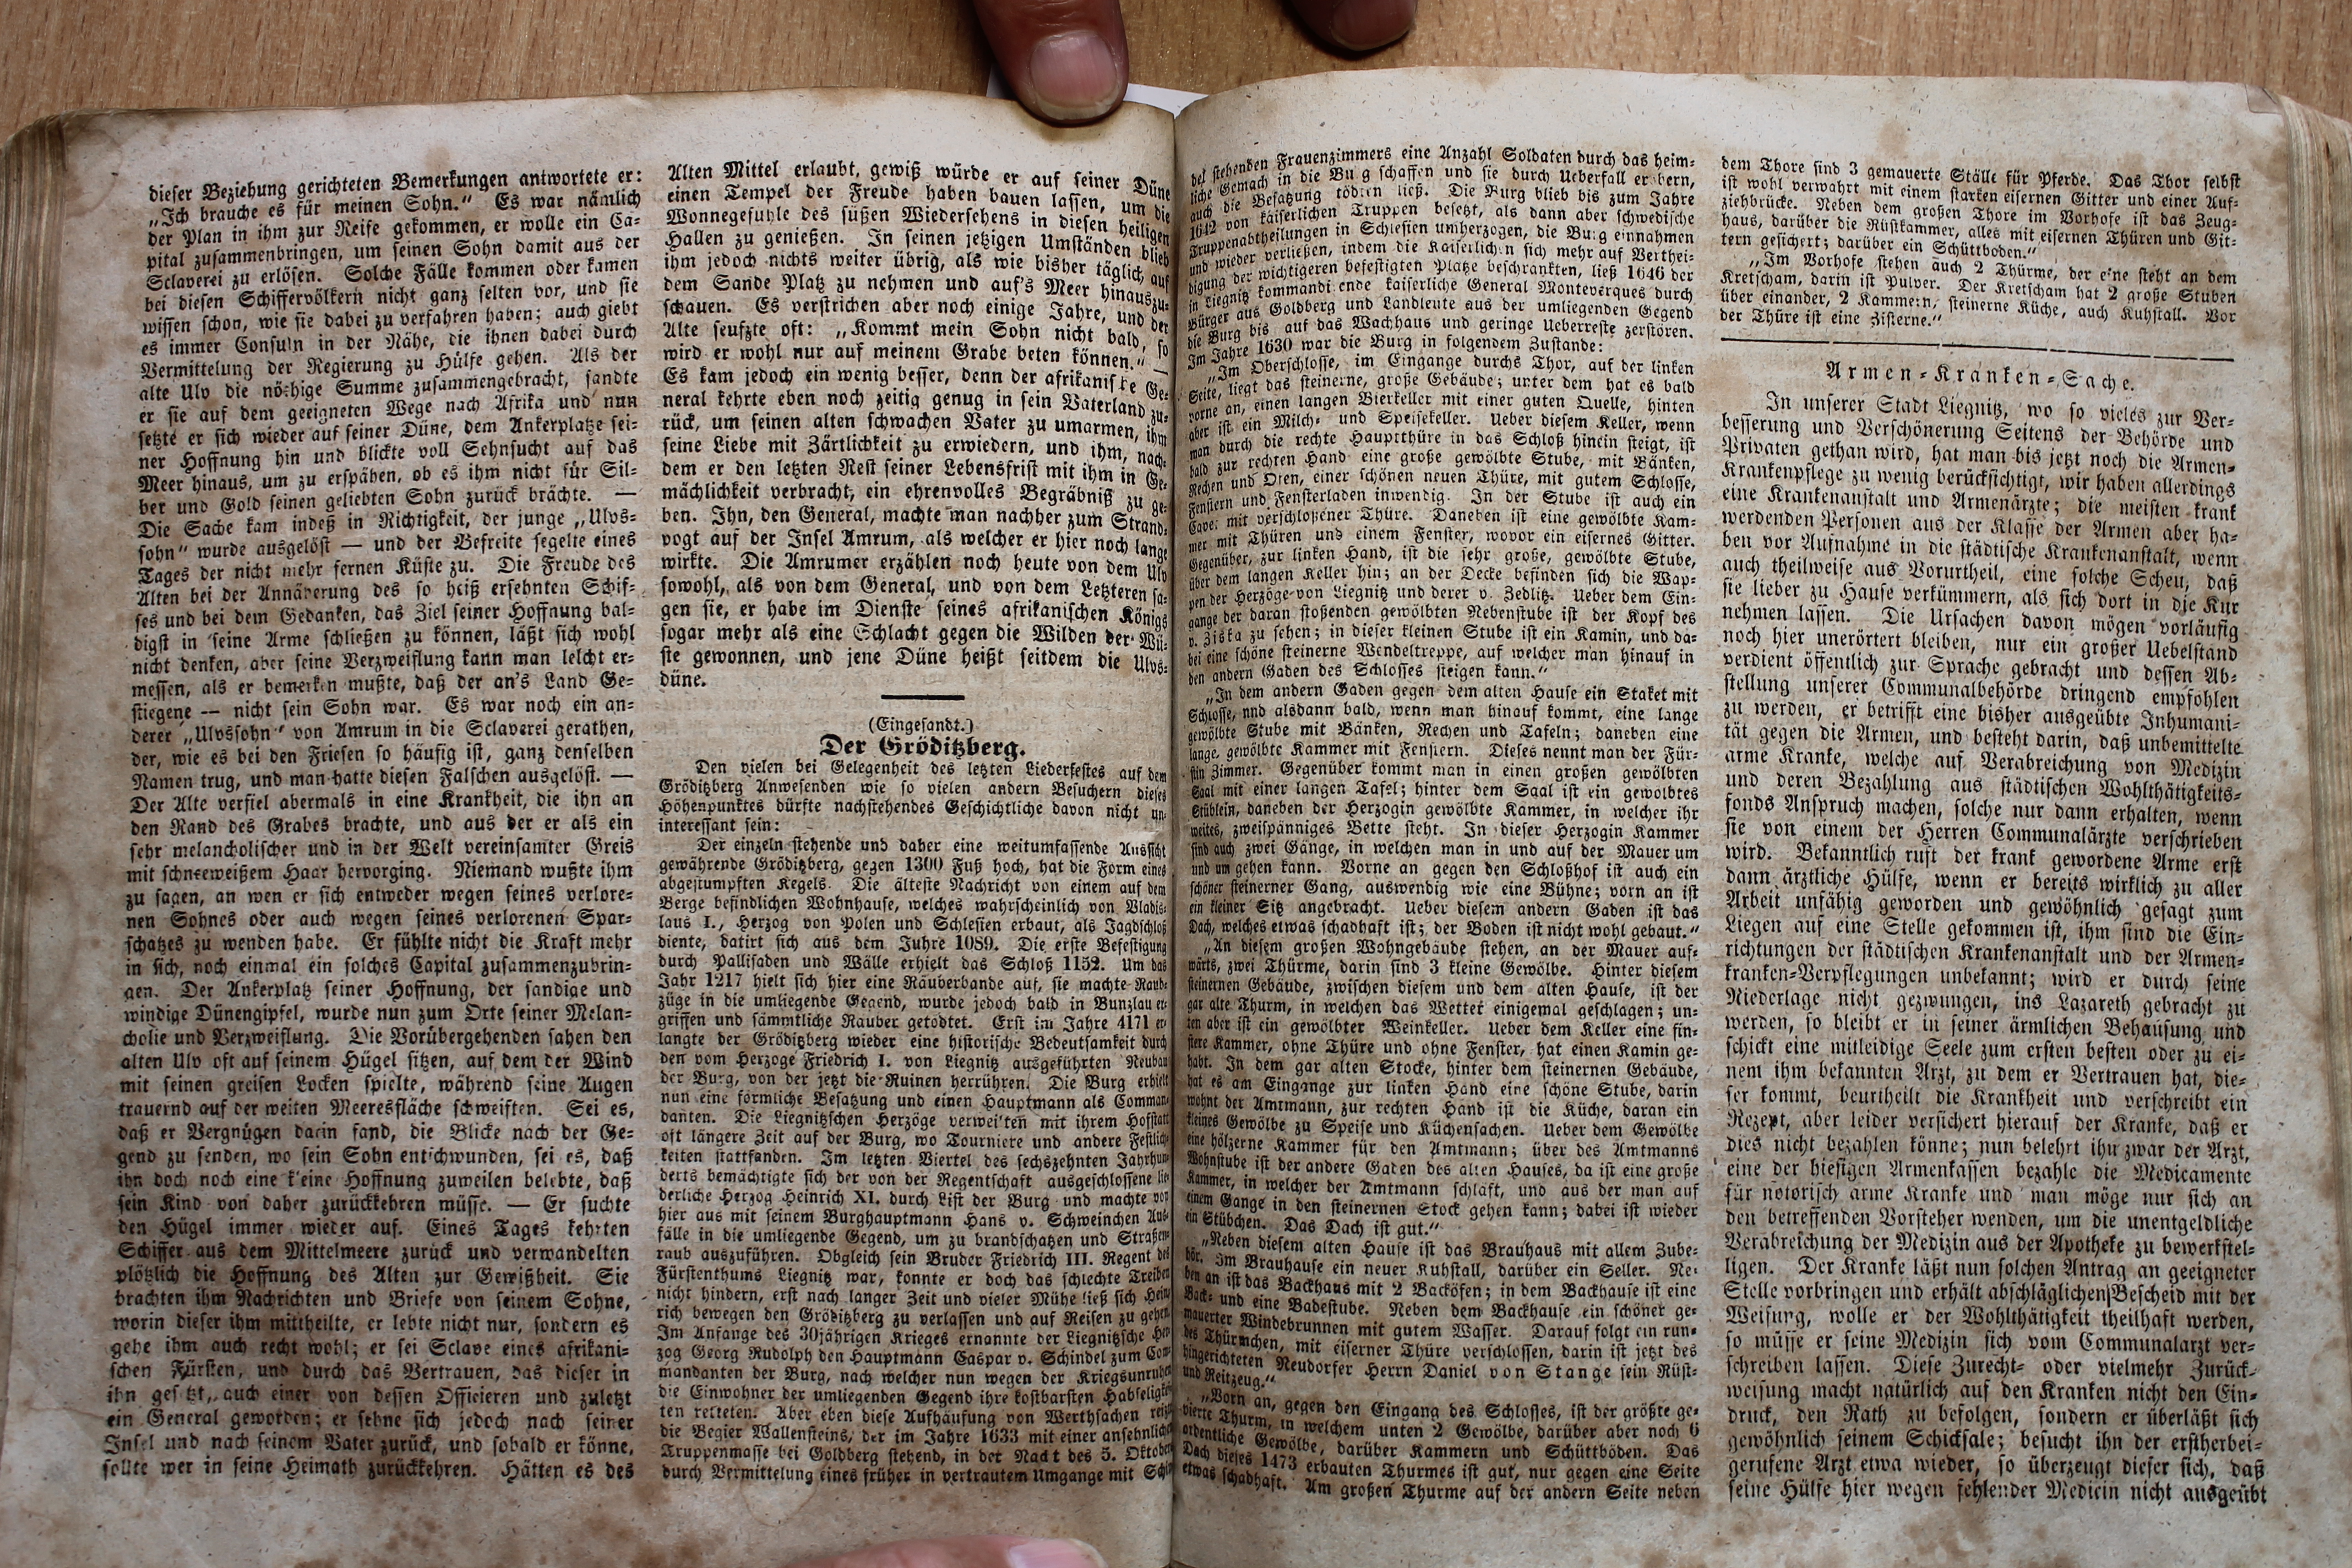 dieser Beziehung gerichteten Bemerkungen antwortete er:
„Ich brauche es für meinen Sohn.“ Es war nämlich
der Plan in ihm zur Reife gekommen, er wolle ein Ca-
pital zusammenbringen, um seinen Sohn damit aus der
Sclaverei zu erlösen. Solche Fälle kommen oder kamen
bei diesen Schiffervölkern nicht ganz selten vor, und sie
wissen schon, wie sie dabei zu verfahren haben; auch giebt
es immer Consuln in der Nähe, die ihnen dabei durch
Vermittelung der Regierung zu Hülfe gehen. Als der
alte Ulv die nöthige Summe zusammengebracht, sandte
er sie auf dem geeigneten Wege nach Afrika und nun
setzte er sich wieder auf seiner Düne, dem Ankerplatze sei-
ner Hoffnung hin und blickte voll Sehnsucht auf das
Meer hinaus, um zu erspähen, ob es ihm nicht für Sil-
ber und Gold seinen geliebten Sohn zurück brächte. —
Die Sache kam indeß in Richtigkeit, der junge „Ulvs-
sohn“ wurde ausgelöst — und der Befreite segelte eines
Tages der nicht mehr fernen Küste zu. Die Freude des
Alten bei der Annäherung des so heiß ersehnten Schif-
fes und bei dem Gedanken, das Ziel seiner Hoffnung bal-
digst in seine Arme schließen zu können, läßt sich wohl
nicht denken, aber seine Verzweiflung kann man leicht er-
messen, als er bemerken mußte, daß der an's Land Ge-
stiegene — nicht sein Sohn war. Es war noch ein an-
derer „Ulvssohn“ von Amrum in die Sclaverei gerathen,
der, wie es bei den Friesen so häufig ist, ganz denselben
Namen trug, und man hatte diesen Falschen ausgelöst. —
Der Alte verfiel abermals in eine Krankheit, die ihn an
den Rand des Grabes brachte, und aus der er als ein
sehr melancholischer und in der Welt vereinsamter Greis
mit schneeweißem Haar hervorging. Niemand wußte ihm
zu sagen, an wen er sich entweder wegen seines verlore-
nen Sohnes oder auch wegen seines verlorenen Spar-
schatzes zu wenden habe. Er fühlte nicht die Kraft mehr
in sich, noch einmal ein solches Capital zusammenzubrin-
gen. Der Ankerplatz seiner Hoffnung, der sandige und
windige Dünengipfel, wurde nun zum Orte seiner Melan-
cholie und Verzweiflung. Die Vorübergehenden sahen den
alten Ulv oft auf seinem Hügel sitzen, auf dem der Wind
mit seinen greisen Locken spielte, während seine Augen
trauernd auf der weiten Meeresfläche schweiften. Sei es,
daß er Vergnügen darin fand, die Blicke nach der Ge-
gend zu senden, wo sein Sohn entschwunden, sei es, daß
ihn doch noch eine kleine Hoffnung zuweilen belebte, daß
sein Kind von daher zurückkehren müsse. — Er suchte
den Hügel immer wieder auf. Eines Tages kehrten
Schiffer aus dem Mittelmeere zurück und verwandelten
plötzlich die Hoffnung des Alten zur Gewißheit. Sie
brachten ihm Nachrichten und Briefe von seinem Sohne,
worin dieser ihm mittheilte, er lebte nicht nur, sondern es
gehe ihm auch recht wohl; er sei Sclave eines afrikani-
schen Fürsten, und durch das Vertrauen, das dieser in
ihn gesetzt, auch einer von dessen Officieren und zuletzt
ein General geworden; er sehne sich jedoch nach seiner
Insel und nach seinem Vater zurück, und sobald er könne,
sollte wer in seine Heimath zurückkehren. Hätten es des
Alten Mittel erlaubt, gewiß würde er auf seiner Düne
einen Tempel der Freude haben bauen lassen, um die
Wonnegefühle des süßen Wiedersehens in diesen heiligen
Hallen zu genießen. In seinen jetzigen Umständen blieb
ihm jedoch nichts weiter übrig, als wie bisher täglich auf
dem Sande Platz zu nehmen und auf's Meer hinauszu-
schauen. Es verstrichen aber noch einige Jahre, und der
Alte seufzte oft: „Kommt mein Sohn nicht bald, so
wird er wohl nur auf meinem Grabe beten können.“ —
Es kam jedoch ein wenig besser, denn der afrikanische Ge-
neral kehrte eben noch zeitig genug in sein Vaterland zu-
rück, um seinen alten schwachen Vater zu umarmen, ihm
seine Liebe mit Zärtlichkeit zu erwiedern, und ihm, nach-
dem er den letzten Rest seiner Lebensfrist mit ihm in Ge-
mächlichkeit verbracht, ein ehrenvolles Begräbniß zu ge-
ben. Ihn, den General, machte man nachher zum Strand-
vogt auf der Insel Amrum, als welcher er hier noch lange
wirkte. Die Amrumer erzählen noch heute von dem Ulv
sowohl, als von dem General, und von dem Letzteren sa-
gen sie, er habe im Dienste seines afrikanischen Königs
sogar mehr als eine Schlacht gegen die Wilden der Wü-
ste gewonnen, und jene Düne heißt seitdem die Ulvs-
düne.
(Eingesandt.)
Der Gröditzberg.
Den vielen bei Gelegenheit des letzten Liederfestes auf dem
Gröditzberg Anwesenden wie so vielen andern Besuchern dieses
Höhenpunktes dürfte nachstehendes Geschichtliche davon nicht un-
interessant sein:
Der einzeln stehende und daher eine weitumfassende Aussicht
gewährende Gröditzberg, gegen 1300 Fuß hoch, hat die Form eines
abgestumpften Kegels. Die älteste Nachricht von einem auf dem
Berge befindlichen Wohnhause, welches wahrscheinlich von Vladis-
laus I., Herzog von Polen und Schlesien erbaut, als Jagdschloß
diente, datirt sich aus dem Juhre 1089. Die erste Befestigung
durch Pallisaden und Wälle erhielt das Schloß 1152. Um das
Jahr 1217 hielt sich hier eine Räuberbande auf, sie machte Raub-
züge in die umliegende Gegend, wurde jedoch bald in Bunzlau er-
griffen und sämmtliche Räuber getödtet. Erst im Jahre 4171 er-
langte der Gröditzberg wieder eine historische Bedeutsamkeit durch
den vom Herzoge Friedrich I. von Liegnitz ausgeführten Neubau
der Burg, von der jetzt die Ruinen herrühren. Die Burg erhielt
nun eine förmliche Besatzung und einen Hauptmann als Comman-
danten. Die Liegnitzschen Herzöge verweilten mit ihrem Hofstatt
oft längere Zeit auf der Burg, wo Tourniere und andere Festlich-
keiten stattfanden. Im letzten Viertel des sechszehnten Jahrhun-
derts bemächtigte sich der von der Regentschaft ausgeschlossene lie-
derliche Herzog Heinrich XI. durch List der Burg und machte von
hier aus mit seinem Burghauptmann Hans v. Schweinchen Aus-
fälle in die umliegende Gegend, um zu brandschatzen und Straßen-
raub auszuführen. Obgleich sein Bruder Friedrich III. Regent des
Fürstenthums Liegnitz war, konnte er doch das schlechte Treiben
nicht hindern, erst nach langer Zeit und vieler Mühe ließ sich Hein-
rich bewegen den Gröditzberg zu verlassen und auf Reisen zu gehen.
Im Anfange des 30jährigen Krieges ernannte der Liegnitzsche Her-
zog Georg Rudolph den Hauptmann Caspar v. Schindel zum Com-
mandanten der Burg, nach welcher nun wegen der Kriegsunruhen
die Einwohner der umliegenden Gegend ihre kostbarsten Habseligkei-
ten retteten. Aber eben diese Aufhäufung von Werthsachen reizte
die Begier Wallensteins, der im Jahre 1633 mit einer ansehnlichen
Truppenmasse bei Goldberg stehend, in der Nacht des 5. Oktober
durch Vermittelung eines früher in vertrautem Umgange mit
stehenden Frauenzimmers eine Anzahl Soldaten durch das heim-
liche Gemach in die Burg schaffen und sie durch Ueberfall erobern,
auch die Besatzung tödten ließ. Die Burg blieb bis zum Jahre
1642 von kaiserlichen Truppen besetzt, als dann aber schwedische
Truppenabtheilungen in Schlesien umherzogen, die Burg einnahmen
und wieder verließen, indem die Kaiserlichen sich mehr auf Verthei-
digung der wichtigeren befestigten Plätze beschränkten, ließ 1646 der
in Liegnitz kommandirende kaiserliche General Monteverques durch
Bürger aus Goldberg und Landleute aus der umliegenden Gegend
die Burg bis auf das Wachhaus und geringe Ueberreste zerstören.
Im Jahre 1630 war die Burg in folgendem Zustande:
„Im Oberschlosse, im Eingange durchs Thor, auf der linken
Seite, liegt das steinerne, große Gebäude; unter dem hat es bald
vorne an, einen langen Bierkeller mit einer guten Quelle, hinten
aber ist ein Milch- und Speisekeller. Ueber diesem Keller, wenn
man durch die rechte Hauptthüre in das Schloß hinein steigt, ist
bald zur rechten Hand eine große gewölbte Stube, mit Bänken,
Rechen und Ofen, einer schönen neuen Thüre, mit gutem Schlosse,
Fenstern und Fensterladen inwendig. In der Stube ist auch ein
mit verschloßener Thüre. Daneben ist eine gewölbte Kam-
mer mit Thüren und einem Fenster, wovor ein eisernes Gitter.
Gegenüber, zur linken Hand, ist die sehr große, gewölbte Stube,
über dem langen Keller hin; an der Decke befinden sich die Wap-
pen der Herzöge von Liegnitz und derer v. Zedlitz. Ueber dem Ein-
gange der daran stoßenden gewölbten Nebenstube ist der Kopf des
v. Ziska zu sehen; in dieser kleinen Stube ist ein Kamin, und da-
bei eine schöne steinerne Wendeltreppe, auf welcher man hinauf in
den andern Gaden des Schlosses steigen kann.“
„In dem andern Gaden gegen dem alten Hause ein Staket mit
Schlosse, nnd alsdann bald, wenn man hinauf kommt, eine lange
gewölbte Stube mit Bänken, Rechen und Tafeln; daneben eine
lange, gewölbte Kammer mit Fenstern. Dieses nennt man der Für-
stin Zimmer. Gegenüber kommt man in einen großen gewölbten
Saal mit einer langen Tafel; hinter dem Saal ist ein gewölbtes
Stüblein, daneben der Herzogin gewölbte Kammer, in welcher ihr
weites, zweispänniges Bette steht. In dieser Herzogin Kammer
sind auch zwei Gänge, in welchen man in und auf der Mauer um
und um gehen kann. Vorne an gegen den Schloßhof ist auch ein
schöner steinerner Gang, auswendig wie eine Bühne; vorn an ist
ein kleiner Sitz angebracht. Ueber diesem andern Gaden ist das
Dach, welches etwas schadhaft ist; der Boden ist nicht wohl gebaut.“
„An diesem großen Wohngebäude stehen, an der Mauer auf-
wärts, zwei Thürme, darin sind 3 kleine Gewölbe. Hinter diesem
steinernen Gebäude, zwischen diesem und dem alten Hause, ist der
gar alte Thurm, in welchen das Wetter einigemal geschlagen; un-
ten aber ist ein gewölbter Weinkeller. Ueber dem Keller eine fin-
stere Kammer, ohne Thüre und ohne Fenster, hat einen Kamin ge-
habt. In dem gar alten Stocke, hinter dem steinernen Gebäude,
hat es am Eingange zur linken Hand eine schöne Stube, darin
wohnt der Amtmann, zur rechten Hand ist die Küche, daran ein
kleines Gewölbe zu Speise und Küchensachen. Ueber dem Gewölbe
eine hölzerne Kammer für den Amtmann; über des Amtmanns
Wohnstube ist der andere Gaden des alten Hauses, da ist eine große
Kammer, in welcher der Amtmann schläft, und aus der man auf
einem Gange in den steinernen Stock gehen kann; dabei ist wieder
ein Stübchen. Das Dach ist gut.“
„Neben diesem alten Hause ist das Brauhaus mit allem Zube-
hör. Im Brauhause ein neuer Kuhstall, darüber ein Seller. Ne-
ben an ist das Backhaus mit 2 Backöfen; in dem Backhause ist eine
Back- und eine Badestube. Neben dem Backhause ein schöner ge-
mauerter Windebrunnen mit gutem Wasser. Darauf folgt ein run-
des Thürmchen, mit eiserner Thüre verschlossen, darin ist jetzt des
hingerichteten Neudorfer Herrn Daniel von Stange sein Rüst-
und Reitzeug.“
„Vorn an, gegen den Eingang des Schlosses, ist der größte ge-
vierte Thurm, in welchem unten 2 Gewölbe, darüber aber noch 6
ordentliche Gewölbe, darüber Kammern und Schüttböden. Das
Dach dieses 1473 erbauten Thurmes ist gut, nur gegen eine Seite
etwas schadhaft. Am großen Thurme auf der andern Seite neben
dem Thore sind 3 gemauerte Ställe für Pferde. Das Thor selbst
ist wohl verwahrt mit einem starken eisernen Gitter und einer Auf-
ziehbrücke. Neben dem großen Thore im Vorhofe ist das Zeug-
haus, darüber die Rüstkammer, alles mit eisernen Thüren und Git-
tern gesichert; darüber ein Schüttboden.“
„Im Vorhofe stehen auch 2 Thürme, der eine steht an dem
Kretscham, darin ist Pulver. Der Kretscham hat 2 große Stuben
über einander, 2 Kammern, steinerne Küche, auch Kuhstall. Vor
der Thüre ist eine Zisterne.“
Armen-Kranken-Sache.
In unserer Stadt Liegnitz, wo so vieles zur Ver-
besserung und Verschönerung Seitens der Behörde und
Privaten gethan wird, hat man bis jetzt noch die Armen-
Krankenpflege zu wenig berücksichtigt, wir haben allerdings
eine Krankenanstalt und Armenärzte; die meisten krank
werdenden Personen aus der Klasse der Armen aber ha-
ben vor Aufnahme in die städtische Krankenanstalt, wenn
auch theilweise aus Vorurtheil, eine solche Scheu, daß
sie lieber zu Hause verkümmern, als sich dort in die Kur
nehmen lassen. Die Ursachen davon mögen vorläufig
noch hier unerörtert bleiben, nur ein großer Uebelstand
verdient öffentlich zur Sprache gebracht und dessen Ab-
stellung unserer Communalbehörde dringend empfohlen
zu werden, er betrifft eine bisher ausgeübte Inhumani-
tät gegen die Armen, und besteht darin, daß unbemittelte
arme Kranke, welche auf Verabreichung von Medizin
und deren Bezahlung aus städtischen Wohlthätigkeits-
fonds Anspruch machen, solche nur dann erhalten, wenn
sie von einem der Herren Communalärzte verschrieben
wird. Bekanntlich ruft der krank gewordene Arme erst
dann ärztliche Hülfe, wenn er bereits wirklich zu aller
Arbeit unfähig geworden und gewöhnlich gesagt zum
Liegen auf eine Stelle gekommen ist, ihm sind die Ein-
richtungen der städtischen Krankenanstalt und der Armen-
kranken-Verpflegungen unbekannt; wird er durch seine
Niederlage nicht gezwungen, ins Lazareth gebracht zu
werden, so bleibt er in seiner ärmlichen Behausung und
schickt eine mitleidige Seele zum ersten besten oder zu ei-
nem ihm bekannten Arzt, zu dem er Vertrauen hat, die-
ser kommt, beurtheilt die Krankheit und verschreibt ein
Rezept, aber leider versichert hierauf der Kranke, daß er
dies nicht bezahlen könne; nun belehrt ihn zwar der Arzt,
eine der hiesigen Armenkassen bezahle die Medicamente
für notorisch arme Kranke und man möge nur sich an
den betreffenden Vorsteher wenden, um die unentgeldliche
Verabreichung der Medizin aus der Apotheke zu bewerkstel-
ligen. Der Kranke läßt nun solchen Antrag an geeigneter
Stelle vorbringen und erhält abschläglichen Bescheid mit der
Weisung, wolle er der Wohlthätigkeit theilhaft werden,
so müsse er seine Medizin sich vom Communalarzt ver-
schreiben lassen. Diese Zurecht- oder vielmehr Zurück-
weisung macht natürlich auf den Kranken nicht den Ein-
druck, den Rath zu befolgen, sondern er überläßt sich
gewöhnlich seinem Schicksale; besucht ihn der erstherbei-
gerufene Arzt etwa wieder, so überzeugt dieser sich, daß
seine Hülfe hier wegen fehlender Medicin nicht ausgeübt